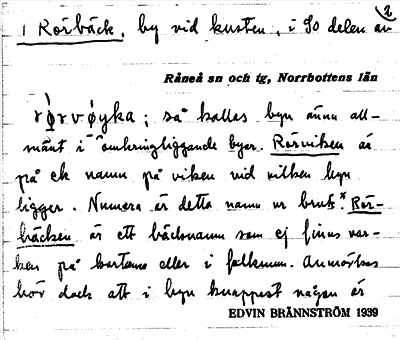 2
1 Rörbäck, by vid kusten, i SO delen av
Råneå sn och tg, Norrbottens län
rò̜rvø̜yka; så kallas byn ännu all-
mänt i omkringliggande byar. Rörviken är
på ett namn på viken vid vilken byn
ligger. Numera är detta namn ur bruk.* Rör-
bäcken är ett bäcknamn som ej finns var-
ken på kartorna eller i folkmun. Anmärkas
bör dock att i byn knappest någon är
EDVIN BRÄNNSTRÖM 1939